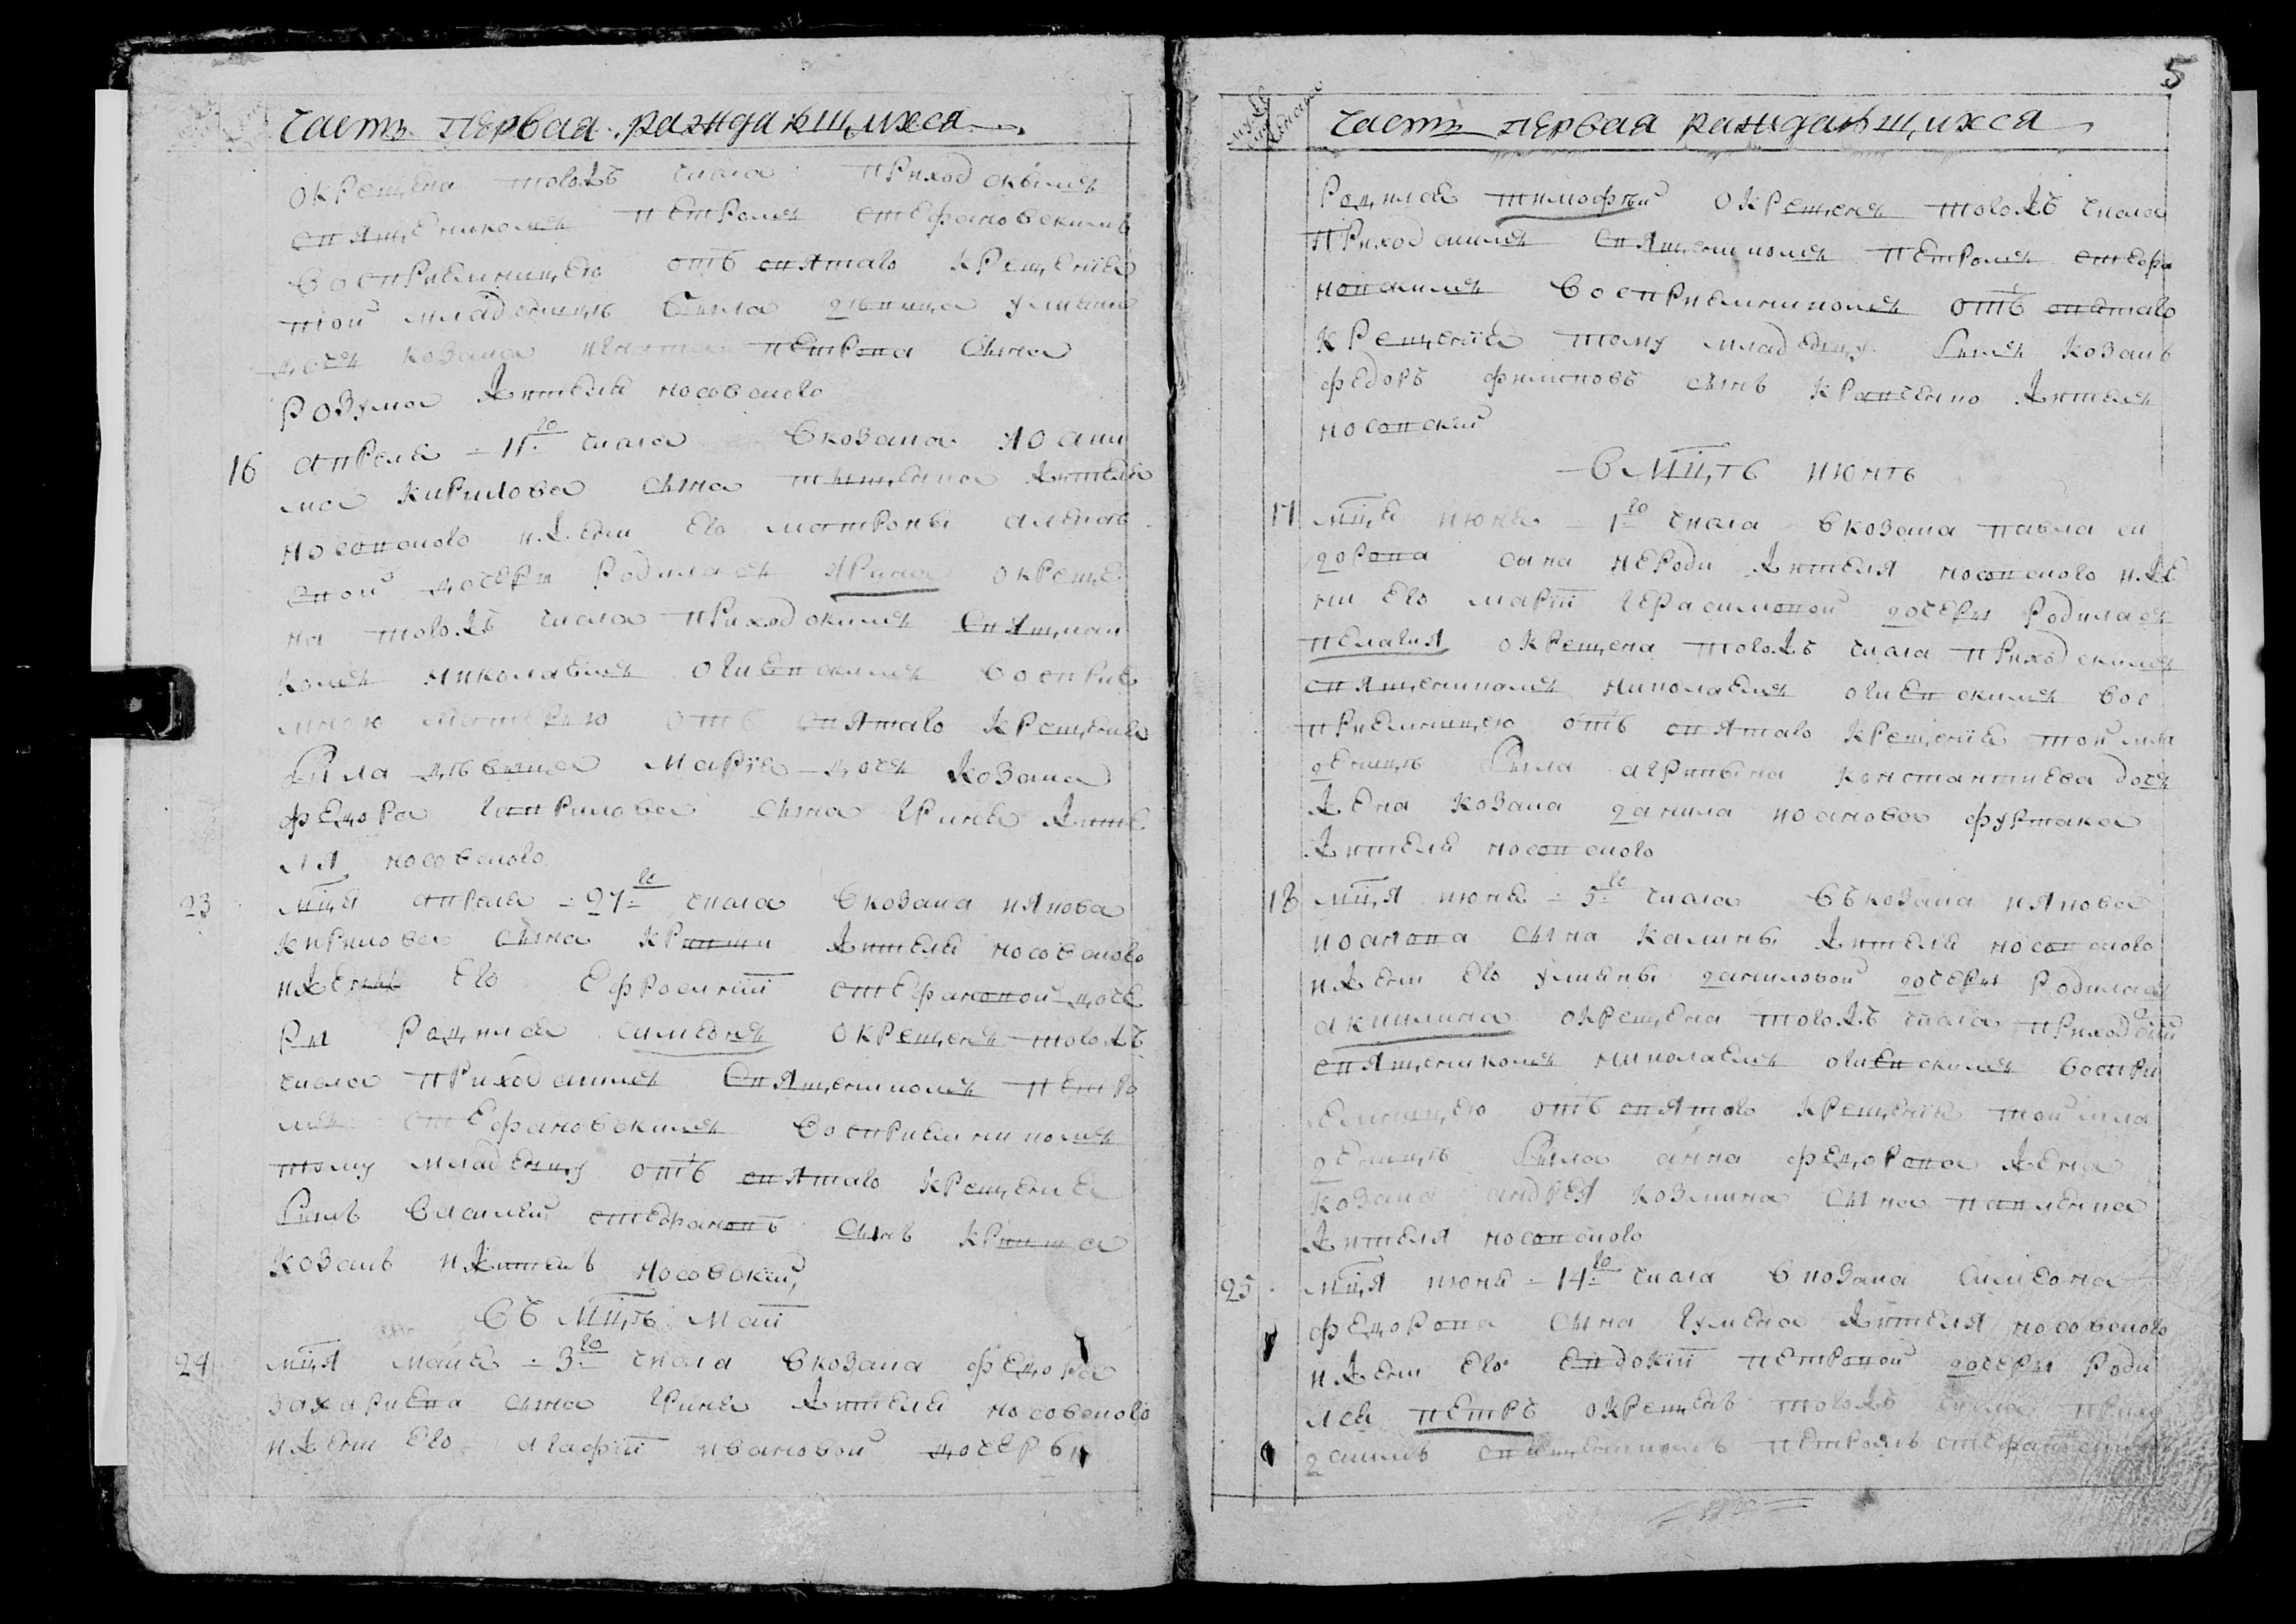 часть первая раждающихся
окрещена тоголъ числа приходскимъ
священикомъ петромъ стефановскимъ
воспрiемницею отъ святаго крещенiя
той младеницѣ была двица улияна
дочъ козака игната петрова сына
розума жителя носовского
16 апреля 11 го числа в козака иоаки
ма кирилова сына тищенка жителя
носовского и жени его матроны
вной дочери родилась ирина окреще
на тогожъ числа приходскимъ священни
комъ николаемъ огиевскимъ воспрiе
мною материю отъ святаго крещения
была дѣвица марiя дочъ козака
федора гаврилова сына гриня жите
ля носовского
23 мця апреля 27 го числа в козака якова
кирилова сына жителя носовского
и жены его ефросинiи стефановой доче
ри родился симеонъ окрещенъ тогожъ
числа приходскимъ священникомъ петро
мъ стефановскимъ воспрiемникомъ
тому младенцу отъ святаго крещения
билъ василий стефановъ сынъ
козакъ и житель носовский
въ мцѣ маи
24 мця мая 3 го числа в козака федора
захариева сына гриня жителя носовского
и жени его агафiи ивановой дочеры
5
часть первая раждающихся
родился тимофѣй окрещенъ тогожъ числа
приходскимъ священникомъ петромъ стефа
новскимъ воспрiемникомъ отъ святаго
крещенiя тому младенцу билъ козакъ
федоръ филиповъ сынъ кравченко житель
носовский
в мцѣ июнѣ
17 мця июня 1 го числа в козака павла си
дорова сына нероди жителя носовского и же
ни его марiи герасимовой дочери родилась
пелагия окрещена тогожъ числа приходскимъ
священникомъ николаемъ огиевскимъ вос
прiемницею отъ святаго крещенiя той мла
деницѣ была агрипына константиева дочъ
жена козака данила иоанова фуртака
жителя носовского
18 мця июня 5 го числа въ козака якова
иоанова сына калины жителя носовского
и жени его улияны даниловой дочери родилась
акилина окрещена тогожъ числа приходским
священникомъ николаемъ огиевскимъ воспри
емницею отъ святаго крещенiя той мла
деницѣ была анна федорова жена
козака андрея козмина сына павленка
жителя носовского
25 мця июня 14 го числа в козака симеона
федорова сына гумена жителя носовского
и жени его евдокiи петровой дочери роди
лся петръ окрещенъ тогожъ числа прихо
дскимъ священникомъ петромъ стефановским